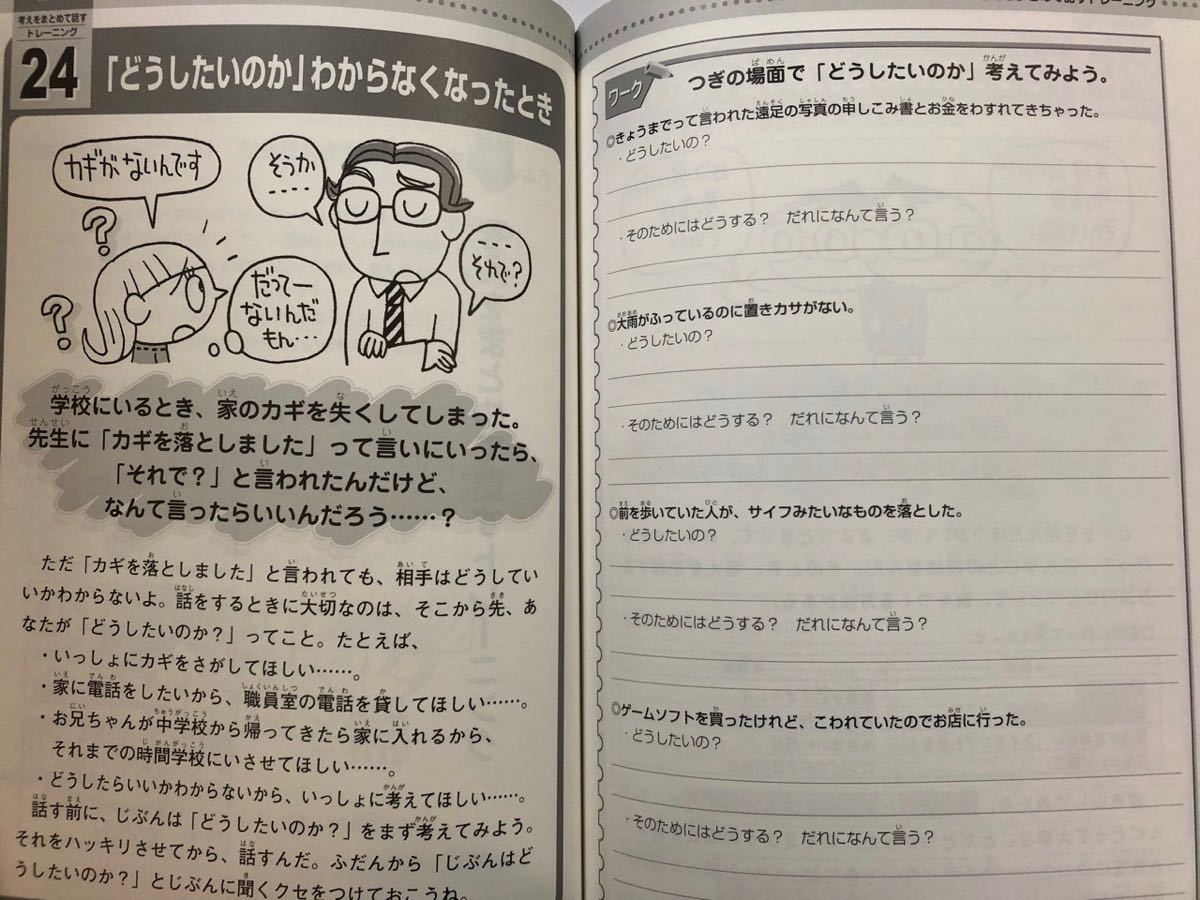 考えをまとめて話す
トレーニング
24
「どうしたいのか」わからなくなったとき
カギがないんです
そうか
----
---
それで?
だってー
ないんだ
もん…
?
?
学校にいるとき、家のカギを失くしてしまった。
先生に「カギを落としました」って言いにいったら、
「それで?」と言われたんだけど、
なんて言ったらいいんだろう……?
ただ「カギを落としました」と言われても、相手はどうしてい
いかわからないよ。話をするときに大切なのは、そこから先、あ
なたが「どうしたいのか?」ってこと。たとえば、
・いっしょにカギをさがしてほしい……。
・家に電話をしたいから、職員室の電話を貸してほしい……。
・お兄ちゃんが中学校から帰ってきたら家に入れるから、
それまでの時間学校にいさせてほしい……。
・どうしたらいいかわからないから、いっしょに考えてほしい……。
話す前に、じぶんは「どうしたいのか?」をまず考えてみよう。
それをハッキリさせてから、話すんだ。ふだんから「じぶんはど
うしたいのか?」とじぶんに聞くクセをつけておこうね。
トレーニング
ワーク
つぎの場面で「どうしたいのか」考えてみよう。
◎きょうまでって言われた遠足の写真の申しこみ書とお金をわすれてきちゃった。
・どうしたいの?
・そのためにはどうする? だれになんて言う?
◎大雨がふっているのに置きカサがない。
・どうしたいの?
・そのためにはどうする? だれになんて言う?
◎前を歩いていた人が、サイフみたいなものを落とした。
・どうしたいの?
・そのためにはどうする? だれになんて言う?
◎ゲームソフトを買ったけれど、こわれていたのでお店に行った。
・どうしたいの?
・そのためにはどうする? だれになんて言う?